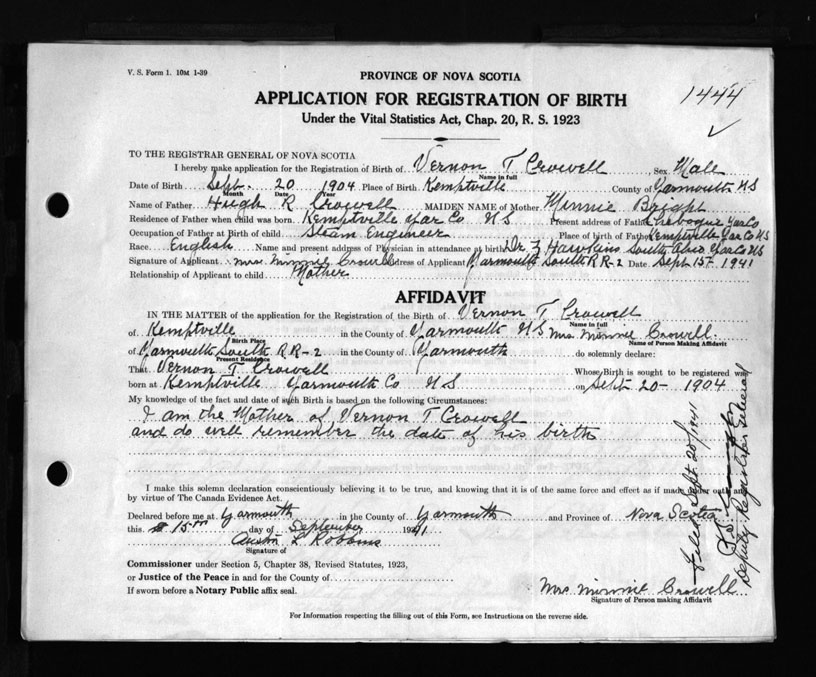 V. S. Form 1. 10M 1-39
PROVINCE OF NOVA SCOTIA
APPLICATION FOR REGISTRATION OF BIRTH
Under the Vital Statistics Act, Chap. 20, R. S. 1923
1444
TO THE REGISTRAR GENERAL OF NOVA SCOTIA
I hereby make application for the Registration of Birth of Vernon T Crowell Sex Male
Name in full
Date of Birth Sept. 20 1904 Place of Birth Kemptville County of Yarmouth NS
Month Date Year
Name of Father Hugh R Crowell MAIDEN NAME of Mother Minnie Bright
Residence of Father when child was born Kemptville Yar Co NS Present address of Father Yar Co
Occupation of Father at Birth of child Steam Engineer Place of birth of Father Kemptville Yar Co NS
Race English Name and present address of Physician in attendance at birth Dr. Z Hawkins South Ohio Yar Co NS
Signature of Applicant Mrs Minnie Crowell Address of Applicant Yarmouth South RR-2 Date Sept 15th 1941
Relationship of Applicant to child Mother
AFFIDAVIT
IN THE MATTER of the application for the Registration of the Birth of Vernon T. Crowell
Name in full
of Kemptville in the County of Yarmouth NS Mrs Minnie Crowell
Birth Place Name of Person Making Affidavit
of Yarmouth South RR-2 in the County of Yarmouth do solemnly declare:
Present Residence
That Vernon T Crowell Whose Birth is sought to be registered was
born at Kemptville Yarmouth Co NS on Sept 20 - 1904
My knowledge of the fact and date of such Birth is based on the following Circumstances:
I am the Mother of Vernon T Crowell
and do well remember the date of his birth
I make this solemn declaration conscientiously believing it to be true, and knowing that it is of the same force and effect as if made under oath and
by virtue of The Canada Evidence Act.
Declared before me at Yarmouth in the County of Yarmouth and Province of Nova Scotia
this 15th day of September 1941
Austin L Robbins
Signature of
Commissioner under Section 5, Chapter 38, Revised Statutes, 1923,
or Justice of the Peace in and for the County of
If sworn before a Notary Public affix seal.
Mrs Minnie Crowell
Signature of Person making Affidavit
For Information respecting the filling out of this Form, see Instructions on the reverse side.
Filed Sept. 20/1941
Deputy Registrar General